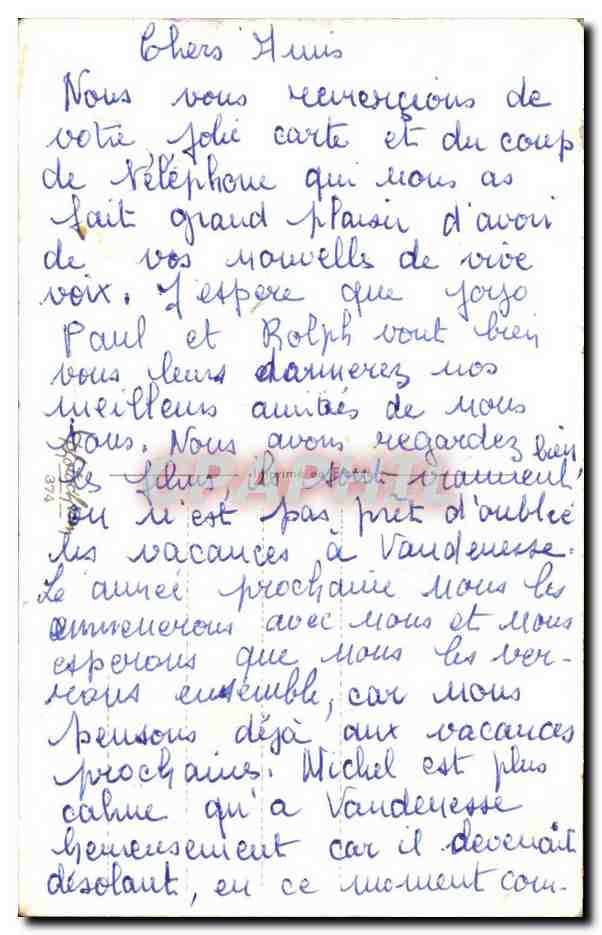 Chers Amis
Nous vous remerçions de
votre jolie carte et du coup
de téléphone qui nous as
fait grand plaisir d'avoir
de vos nouvells de vive
voix. J'espere que Jojo
Paul et Rolph vont bien
vous leurs donnerez nos
meilleurs amitiés de nous
tous. Nous avons regardez bien
les films, ils sont vraiment
on n'est pas prêt d'oublié
les vacances à Vandenesse.
Le année prochaine nous les
emmenerons avec nous et nous
esperons que nous les ver-
rons ensemble, car nous
pensons déjà aux vacances
prochaines. Michel est plus
calme qu'a Vandenesse
heureusement car il devenait
désolant, en ce moment com-
374
CPAPHIL